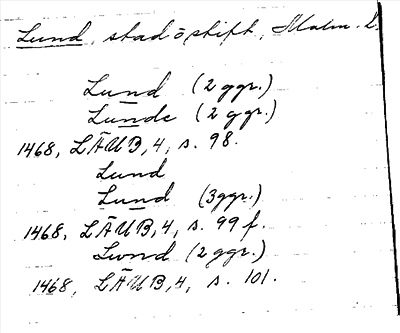 Lund, stad o stift, Malm. L.
Lund (2 ggr.)
Lunde (2 ggr.)
1468, LÄUB, 4, s. 98.
Lund
Lund (3ggr.)
1468, LÄUB, 4, s. 99 f.
Lwnd (2 ggr.)
1468, LÄUB, 4, s. 101.